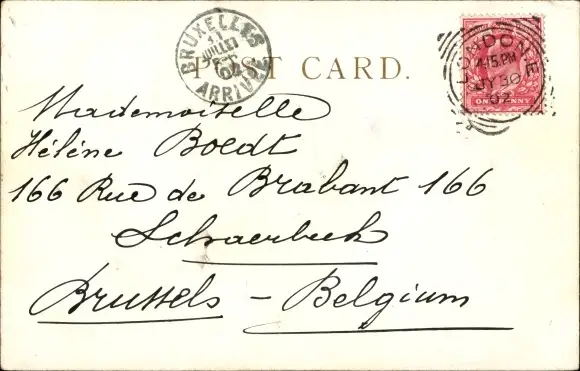 POST CARD.
BRUXELLES
JUILLET
ARRIVÉE
LONDON. E
4.15.PM
JY 30
02
ONE PENNY
Mademoiselle
Héléne Boldt
166 Rue de Brabant 166
Schaerbeek
Brussels - Belgium